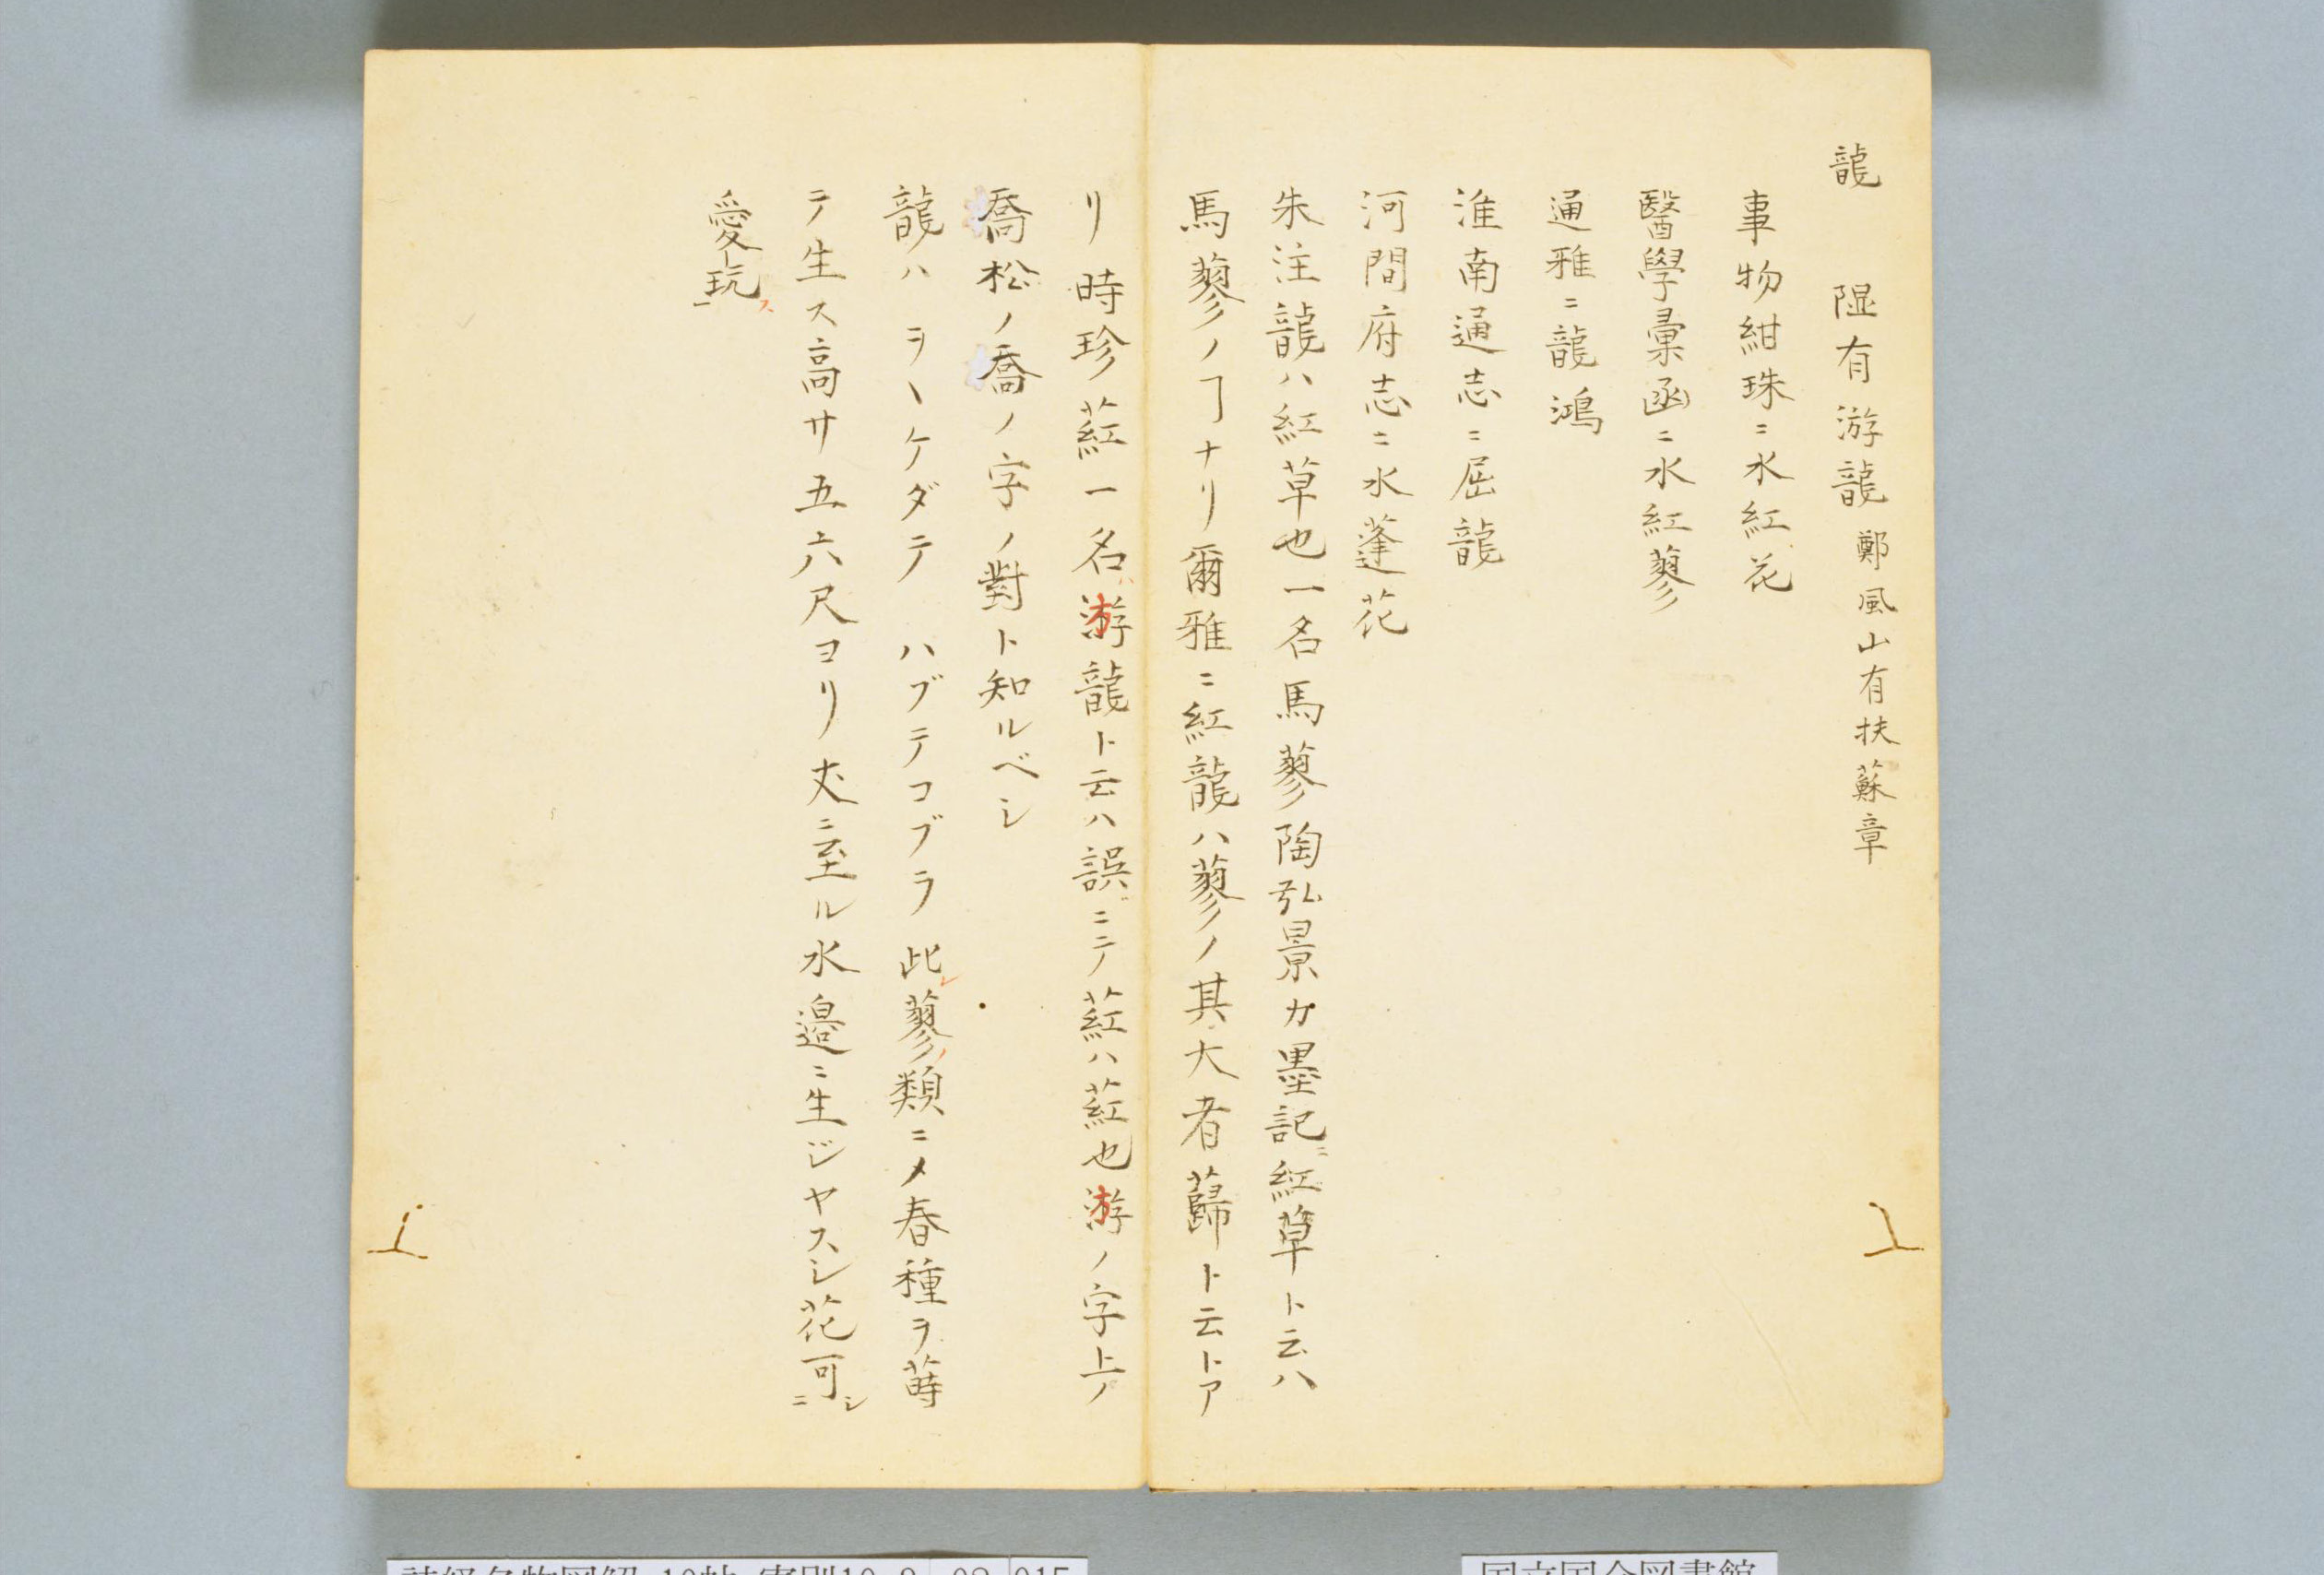 龍　隰有游龍 鄭風山有扶蘇章
事物紺珠ニ水紅花
醫學彙函ニ水紅蓼
通雅ニ龍鴻
淮南通志ニ屈龍
河間府志ニ水蓬花
朱注龍ハ紅草也一名馬蓼陶弘景カ墨記ニ紅草ト云ハ
馬蓼ノヿナリ爾雅ニ紅龍ハ蓼ノ其大者蘬ト云トア
リ 時珍葒一名ハ游龍ト云ハ誤ニテ葒ハ葒也游ノ字上ノ
喬松ノ喬ノ字ノ對ト知ルベシ
龍ハ ヲヽケダテ ハブテコブラ 此レ蓼ノ類ニメ春種ヲ蒔
テ生ス高サ五六尺ヨリ丈ニ至ル水邉ニ生ジヤスシ花可シニ
愛玩ス一
詩経名物図解 10帖 寄別10-8 02 015
国立国会図書館